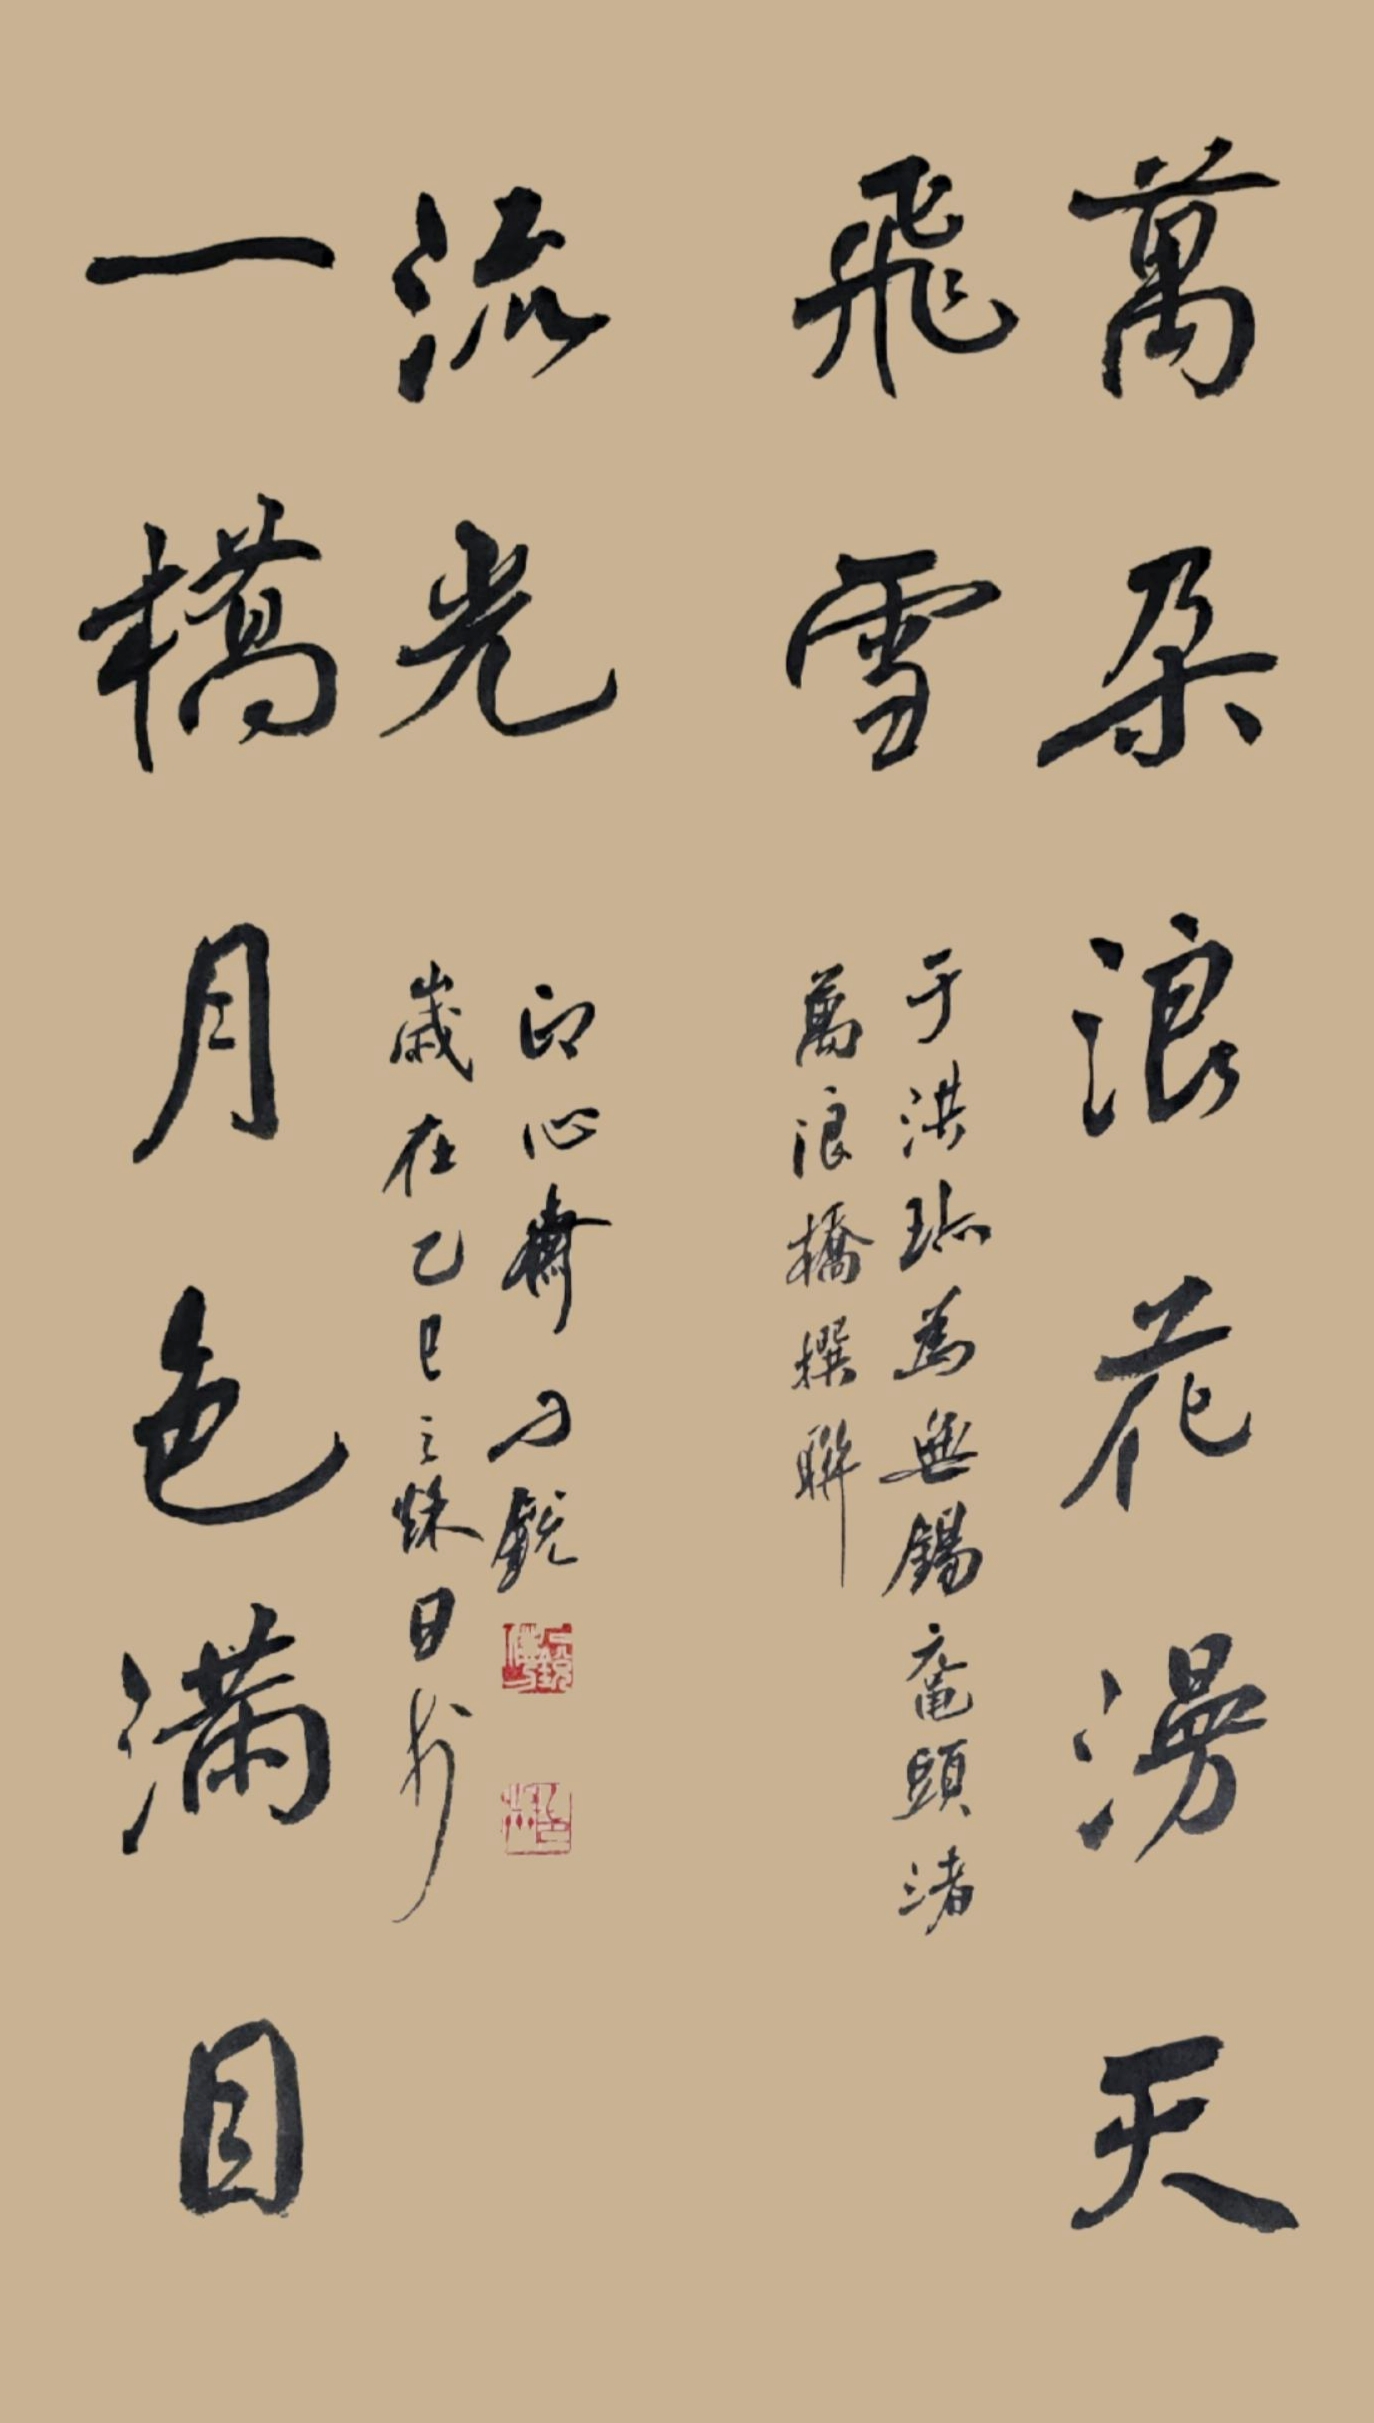 萬朵浪花漫天
飛雪
于洪珍為無錫黿頭渚
萬浪橋撰聯
一橋月色滿目
流光
歲在乙巳之秋日於
印心齋 刀銳